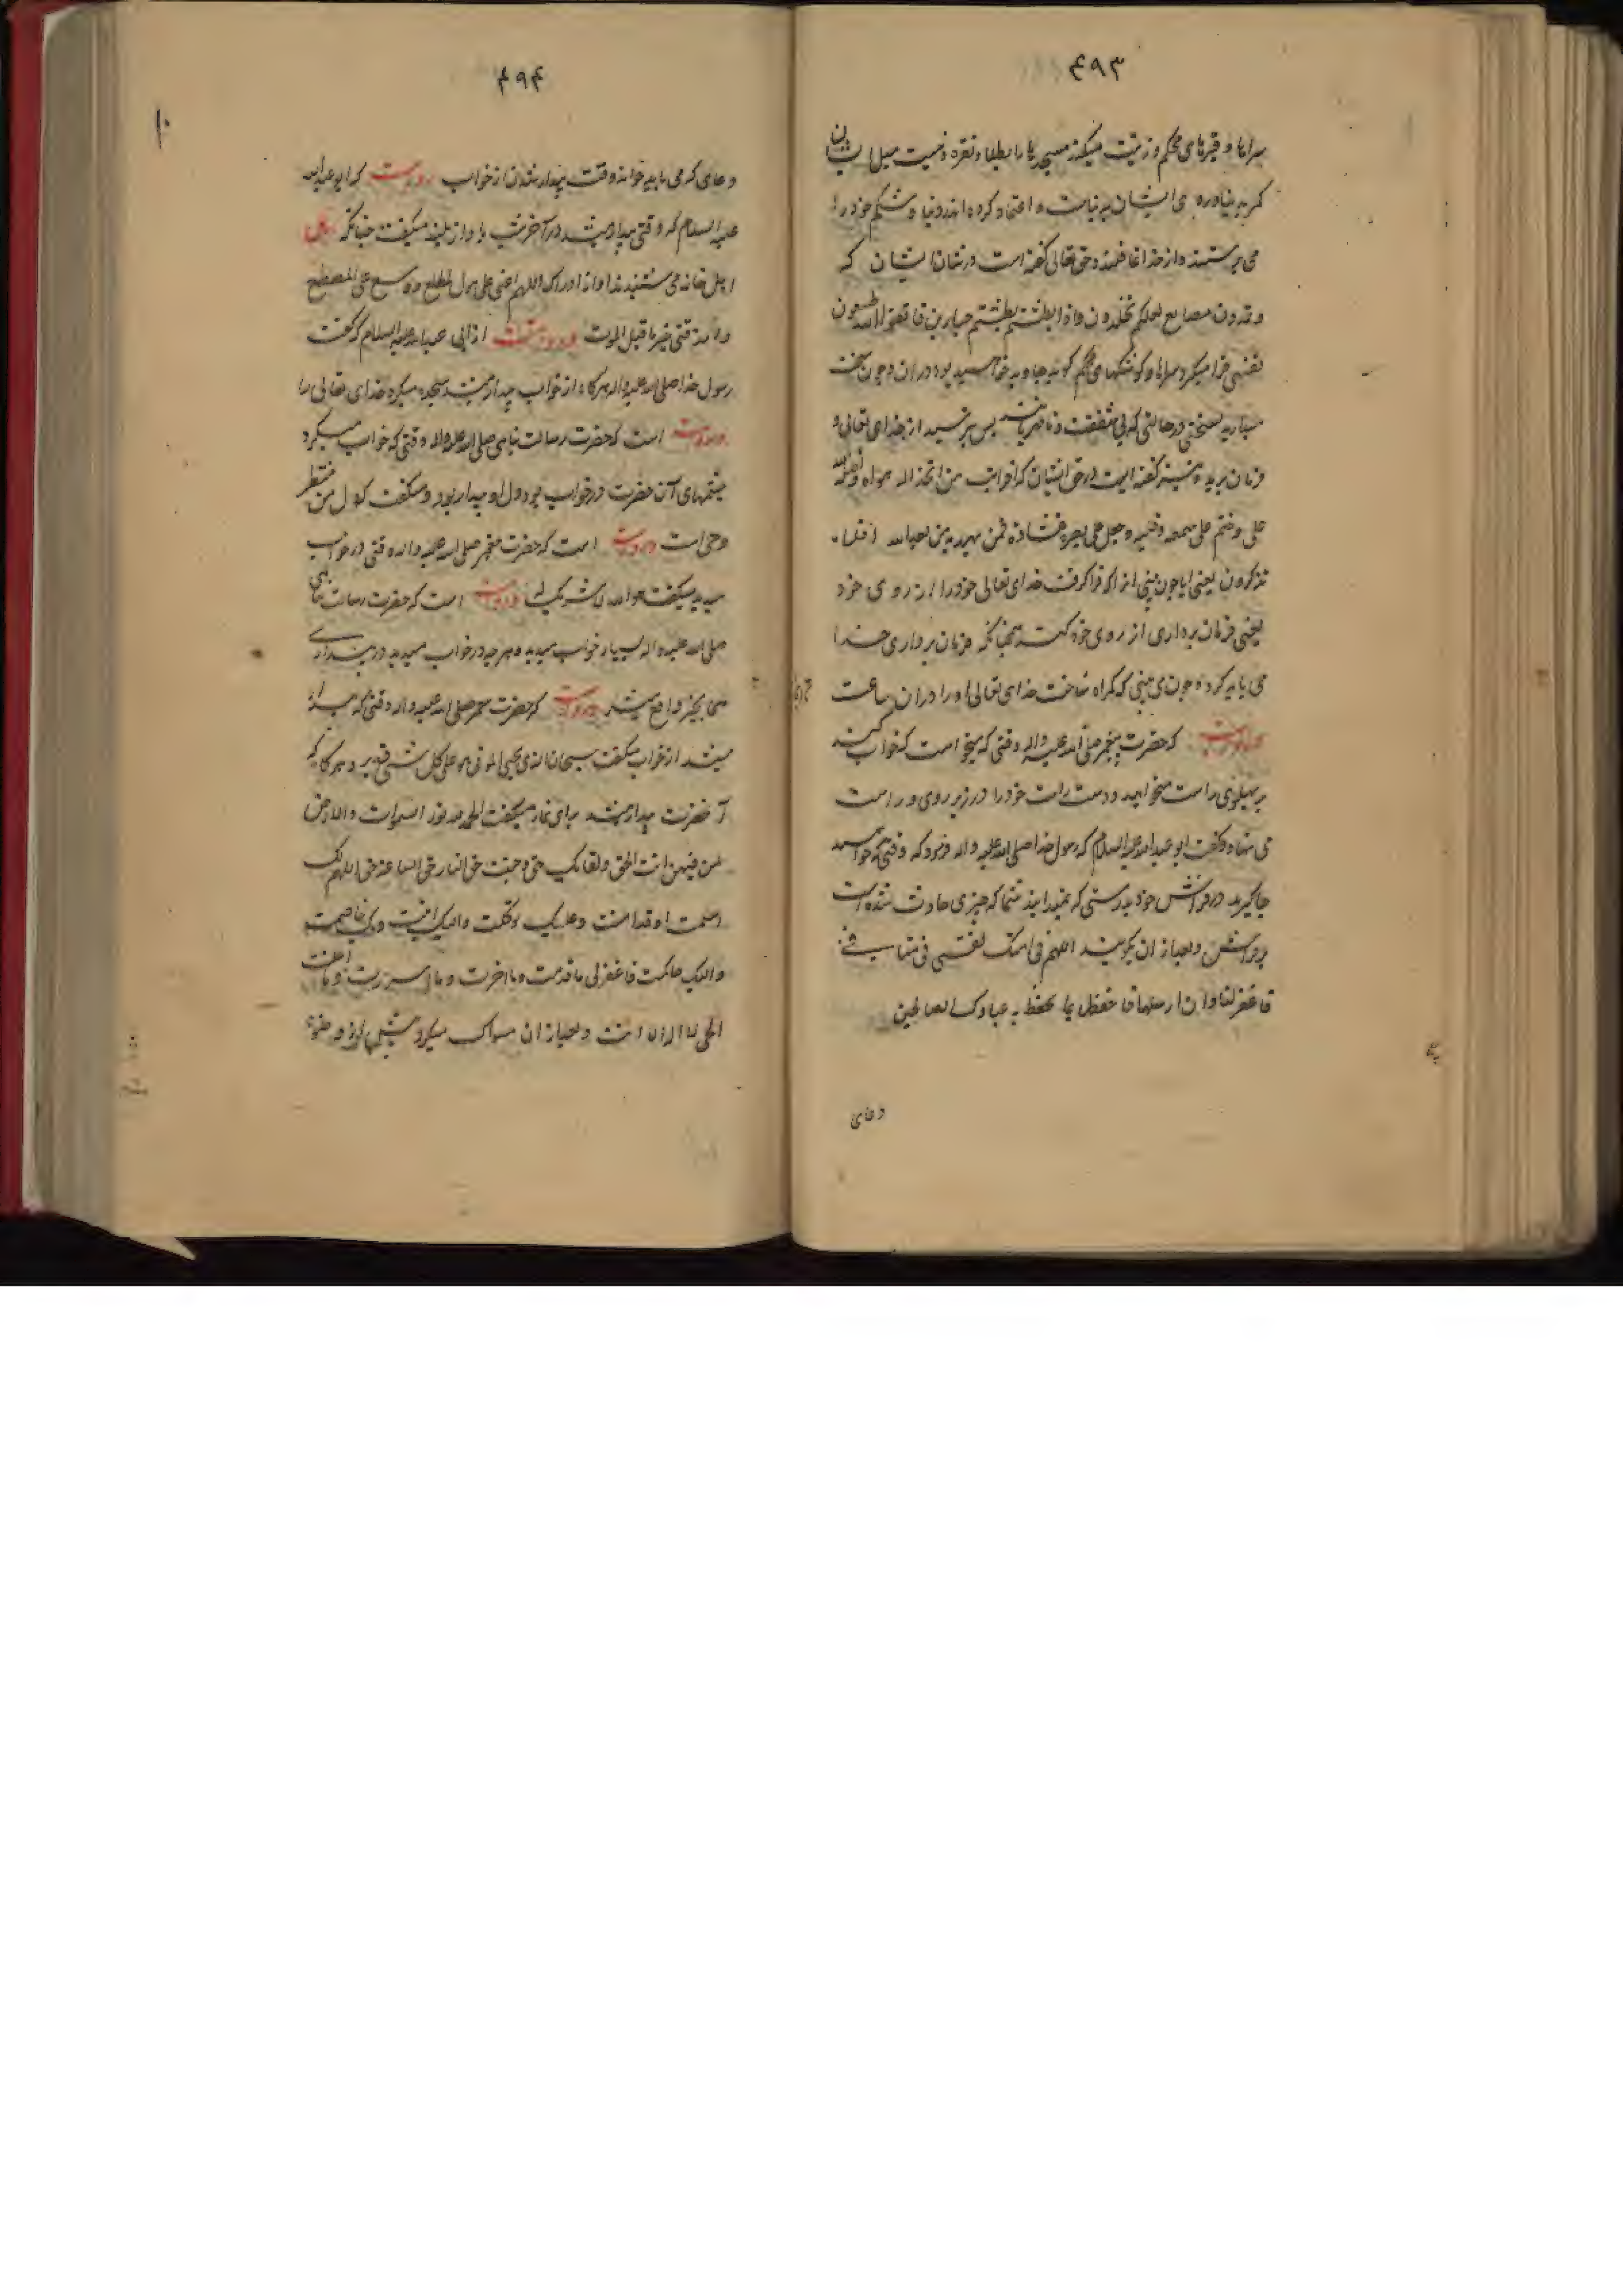 ۴۹۳
سراها و قبرهای محکم و زینت میکنند مسجدها را بطلا و نقره و نیست میل ایشان
مگر بدنیا و روی ایشان بدنیاست و اعتماد کرده‌اند و دنیا و شکم خود را
می پرستند و از خدا غافلند و حق تعالی گفته است در شان ایشان که
و تتخذون مصانع لعلکم تخلدون و اذا بطشتم بطشتم جبارین فاتقوا الله و اطیعون
یعنی فرا میگیرد سراها و کوشکهای محکم گوئید جاوید خواهید بود در آن و چون سخت
میگیرید بسختی در حالتی که بی شفقت و نامهربانید پس بترسید از خدای تعالی و
فرمان برید و نیز گفته است در حق ایشان که افرایت من اتخذ الهه هواه و اضله الله
علی و ختم علی سمعه و قلبه و جعل علی بصره غشاوة فمن یهدیه من بعد الله افلا
تذکرون یعنی ایا چون بینی انرا که فرا گرفت خدای تعالی خود را از روی خود
یعنی فرمان برداری از روی خود کند همچنانکه فرمان برداری خدا
می باید کرد و چون می بینی که گمراه ساخت خدای تعالی او را در آن ساعت
و روایت که حضرت پیغمبر صلی الله علیه و اله وقتی که میخواست که خواب کند
بر پهلوی راست میخوابید و دست راست خود را در زیر روی راست
می نهاد و گفت ابو عبدالله علیه السلام که رسول خدا صلی الله علیه و اله فرمود که وقتی که خواهید
جا گیرید در فراش خود بدرستی که نمیدانید شما که چیزی حادث شده است
بر فراش و بعد از آن بگویید اللهم ان امسکت نفسی فی منامی
فاغفر لها و ان ارسلتها فاحفظها بما تحفظ به عبادک الصالحین
دعای
۴۹۴
دعای که می باید خواند وقت بیدار شدن از خواب روایت که ابو عبدالله
علیه السلام که وقتی بیدار میشد در آخر شب باواز بلند میگفت چنانکه
اهل خانه می شنیدند اواز او را که اللهم اعنی علی هول المطلع و وسع علی المضجع
وارزقنی خیر ما قبل الموت و روایت از ابی عبدالله علیه السلام که گفت
رسول خدا صلی الله علیه و اله هرگاه از خواب بیدار میشد سجده میکرد خدای تعالی را
و روایت است که حضرت رسالت پناهی صلی الله علیه و اله وقتی که خواب میکرد
چشمهای آن حضرت در خواب بود و دل او بیدار بود و میگفت که دل من منتظر
وحی است و روایت است که حضرت پیغمبر صلی الله علیه و اله وقتی در خواب
میدید میگفت هو الله لا شریک له و روایت است که حضرت رسالت پناهی
صلی الله علیه و اله بسیار خواب میدید و هر چه در خواب میدید در بیداری
همان چیز واقع میشد و روایت که حضرت پیغمبر صلی الله علیه و اله وقتی که بیدار
میشد از خواب میگفت سبحان الذی یحیی الموتی و هو علی کل شیی قدیر و هرگاه که
آنحضرت بیدار میشد برای نماز میگفت الحمد لله نور السموات والارض
و من فیهن انت الحق و لقائک حق و جنت حق النار حق الساعة حق اللهم لک
اسلمت و بک امنت و علیک توکلت والیک انبت و بک خاصمت
و الیک حاکمت فاغفر لی ما قدمت و ما اخرت و ما اسررت و ما اعلنت
الهی لا اله الا انت و بعد از آن مسواک میکرد پیش از وضوء